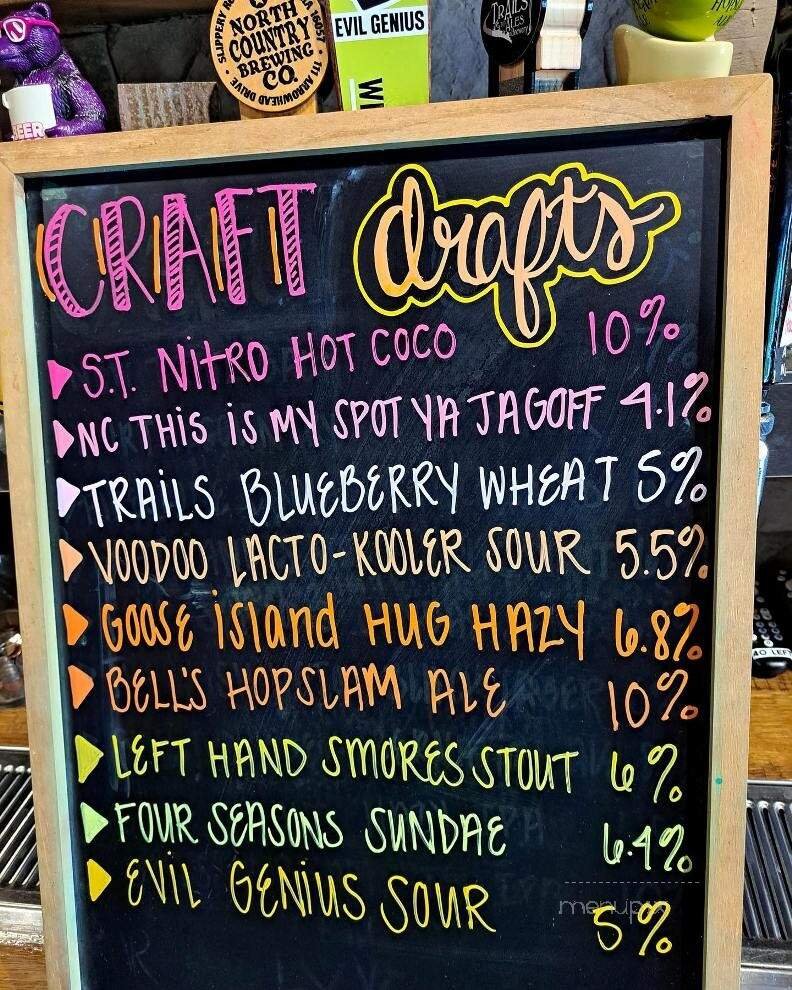 BEER
SLIPPERY RO
NORTH
COUNTRY
BREWING
CO.
141 ARROWHEAD DRIVE
PA 16057
EVIL GENIUS
TRAILS
ALES
CRAFT drafts
S.T. NITRO HOT COCO 10%
NC THIS IS MY SPOT YA JAGOFF 4.1%
TRAILS BLUEBERRY WHEAT 5%
VOODOO LACTO-KOOLER SOUR 5.5%
GOOSE ISLAND HUG HAZY 6.8%
BELL'S HOPSLAM ALE 10%
LEFT HAND SMORES STOUT 6%
FOUR SEASONS SUNDAE 6.4%
EVIL GENIUS SOUR 5%
menupix